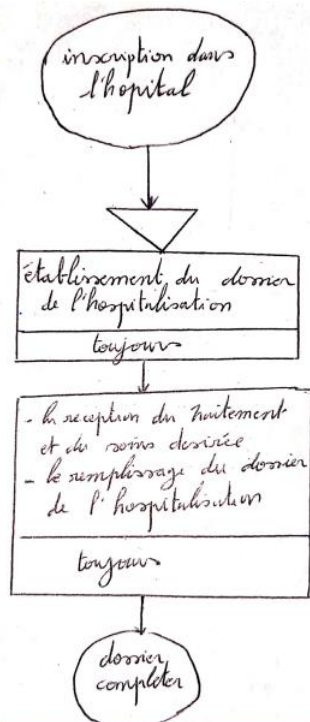 inscription dans
l'hopital
établissement du dossier
de l'hospitalisation
toujours
- la reception du traitement
et du soins desirée
- le remplissage du dossier
de l'hospitalisation
toujours
dossier
completer